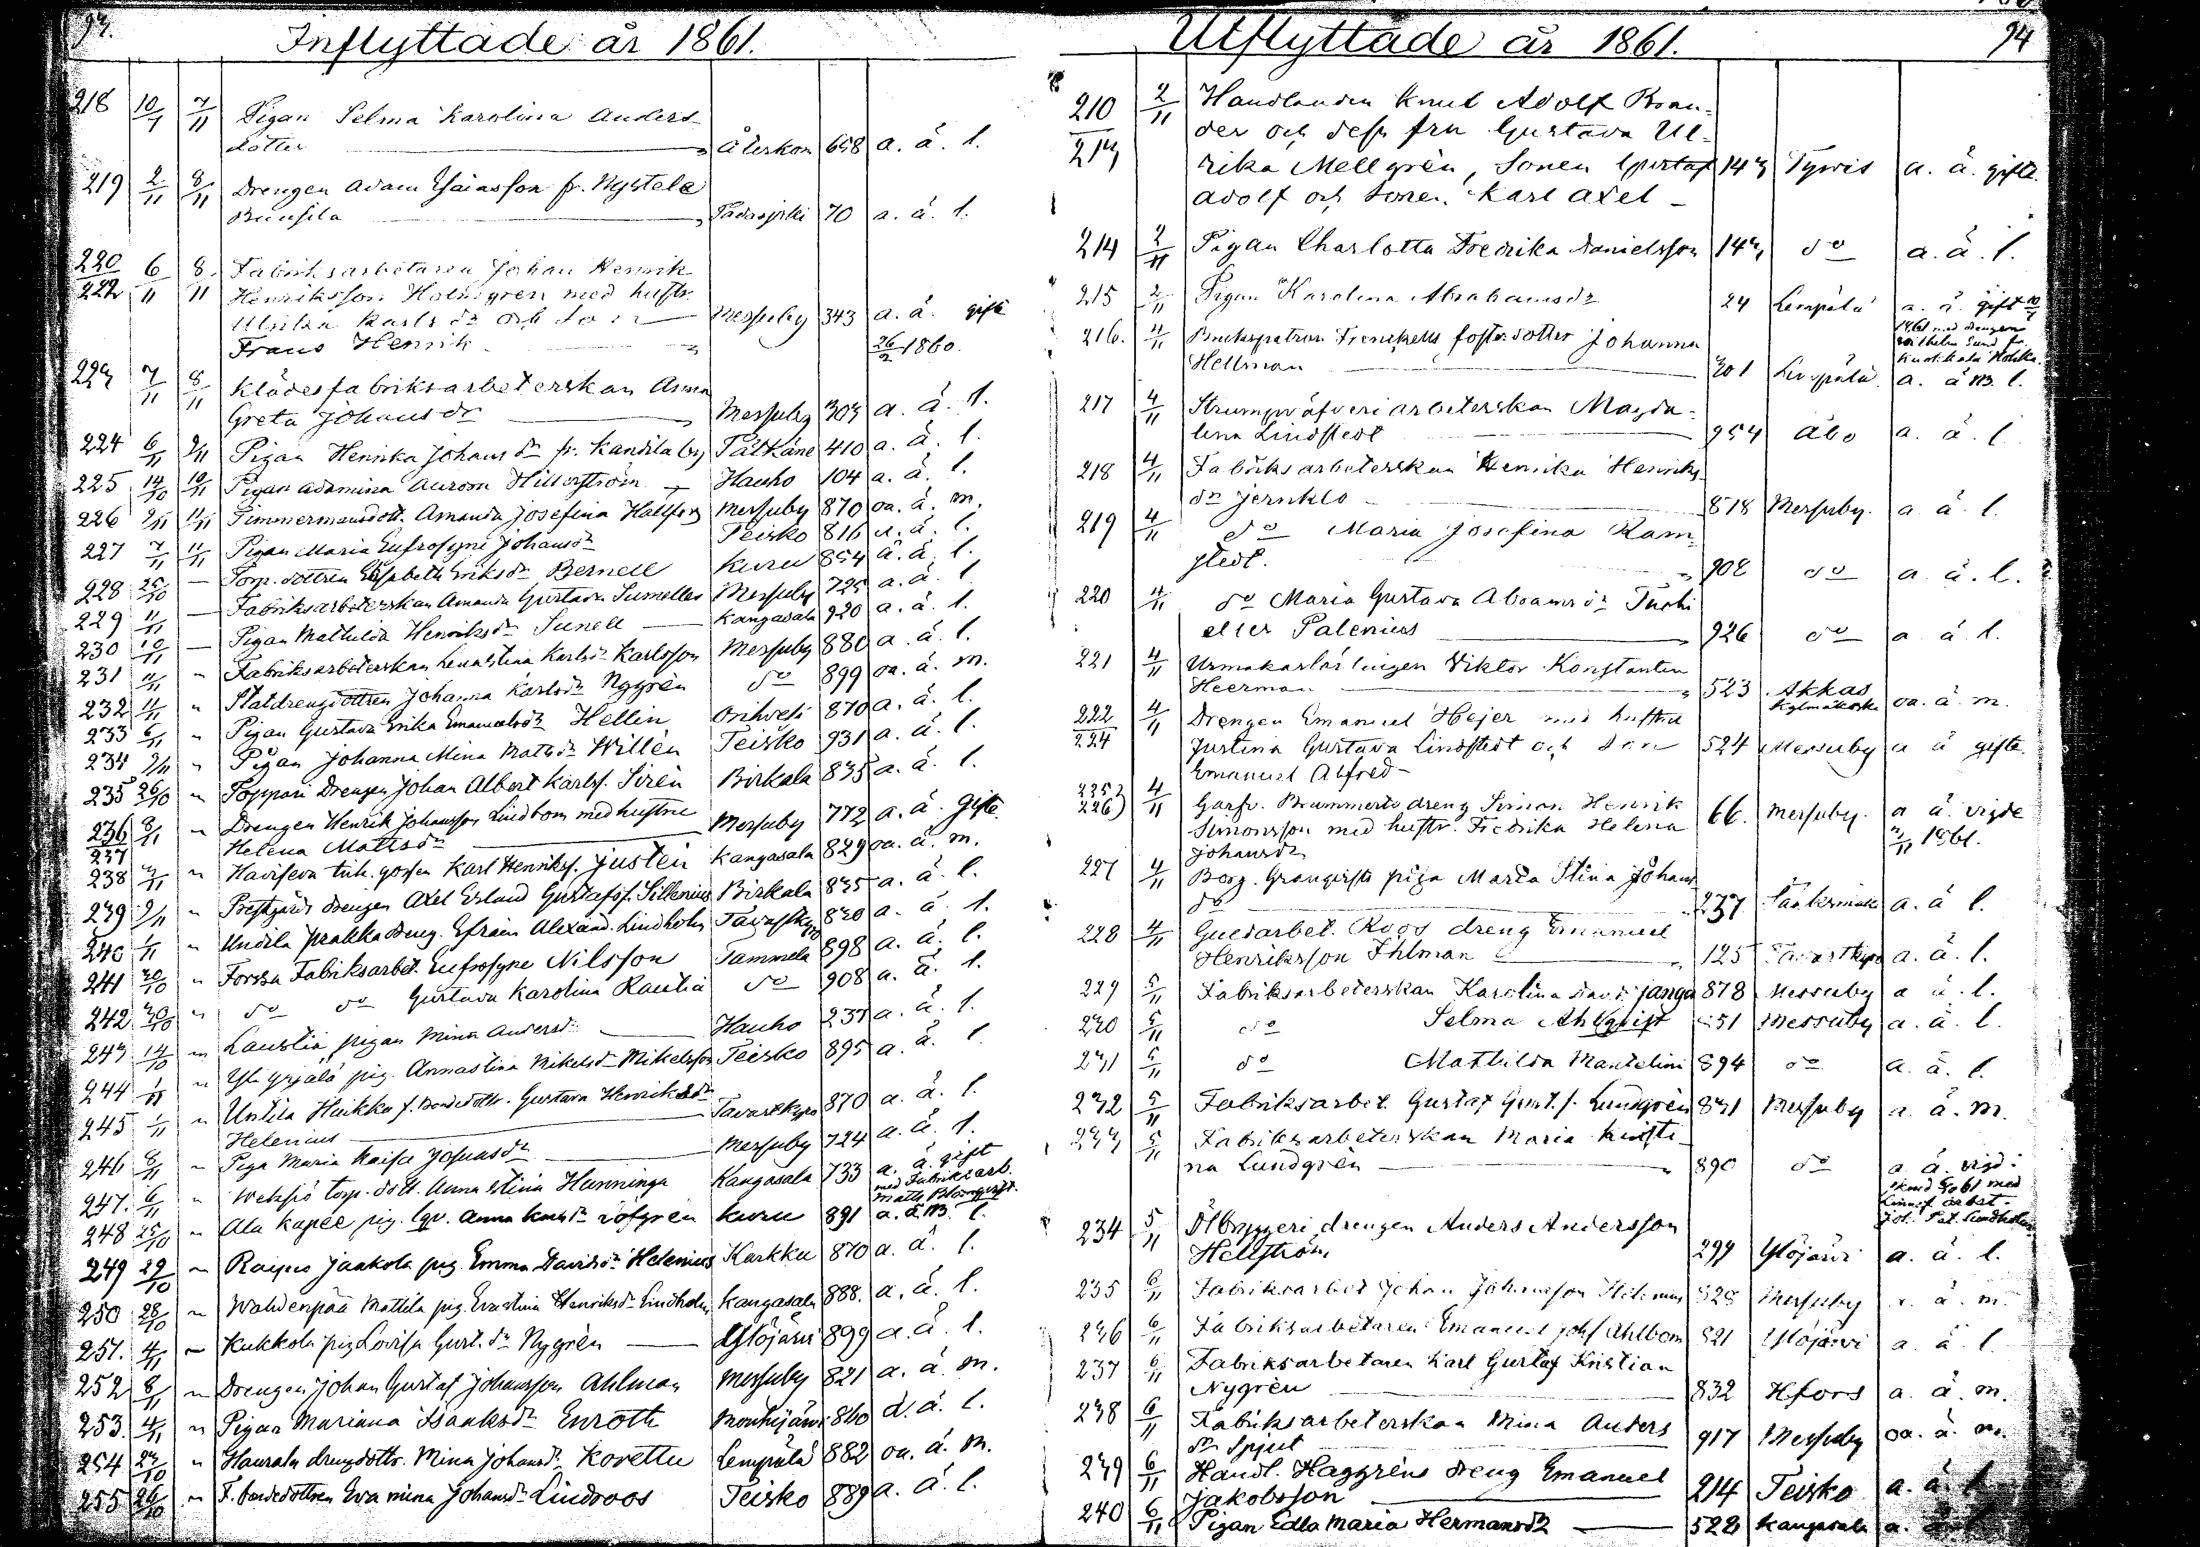 93.
Inflyttade år 1861.
218 10/7 7/11 Pigan Selma Karolina Anders-
dotter Återkom 658 a. å. l.
219 2/11 8/11 Drengen Adam Esaiasson fr. Nystela
70 a. å. l.
220 6/11 8/11 Fabriksarbetaren Johan Henrik
222 Henriksson Holmgren med hustr.
Ulrika Karlsdr och Son Messuby 343 a. å. gift
Frans Henrik 26/2 1860.
223 7/11 8/11 Klädesfabriksarbeterskan Anna
Greta Johansdr Messuby 303 a. å. l.
224 6/11 9/11 Pigan Henrika Johansdr fr. Kandila by Pälkäne 410 a. å. l.
225 14/10 10/11 Pigan Adamina Aurora Hillerström Hauho 104 a. å. l.
226 9/11 11/11 Timmermansdott. Amanda Josefina Hallfors Messuby 870 oa. å. m.
227 7/11 11/11 Pigan Maria Eufrosyne Johansdr Teisko 816 a. å. l.
228 25/10 — Torp. dottren Elisabeth Eriksdr Bernell Kuru 854 a. å. l.
229 11/11 — Fabriksarbeterskan Amanda Gustava Sumelles Messuby 725 a. å. l.
230 10/11 — Pigan Mathilda Henriksdr Sunell Kangasala 920 a. å. l.
231 11/11 " Fabriksarbeterskan Lenastina Karlsdr Karlsson Messuby 880 a. å. l.
232 11/11 " Statdrengdottren Johanna Karlsdr Nygrèn do 899 oa. å. m.
233 6/11 " Pigan Gustava Erika Emanuelsdr Hellin Orihvesi 870 a. å. l.
234 9/11 " Pigan Johanna Mina Matsdr Willèn Teisko 931 a. å. l.
235 26/10 " Soppari Drengen Johan Albert Karlsf. Sirèn Birkala 835 a. å. l.
236 8/11 " Drengen Henrik Johansson Lindbom med hustru
237 Helena Mattsdr Messuby 772 a. å. gifte
238 7/11 " Haviseva tüh. gossen Karl Henriksf. Justén Kangasala 829 oa. å. m.
239 9/11 " Prestgårds drengen Axel Erland Gustafsf. Sillenius Birkala 835 a. å. l.
240 1/11 " Undila prakka dreng. Efraim Alexand. Lindholm Tavastkyrö 820 a. å. l.
241 30/10 " Forssa Fabriksarbet. Eufrosyne Nilsson Tammela 898 a. å. l.
242 30/10 " do do Gustava Karolina Rautia do 908 a. å. l.
243 14/10 " Laustia pigan Mina Andersdr Hauho 237 a. å. l.
244 1/11 " Yli yrjälä pig. Annastina Mikelsdr Mikelsson Teisko 895 a. å. l.
245 1/11 " Untila Huikka f. bondedottr. Gustava Henriksdr
Helenius Tavastkyrö 870 a. å. l.
246 8/11 " Piga Maria Kaisa Josuasdr Messuby 724 a. å. l.
247. 6/11 " Weksjö torp. dott. Anna Stina Hanninga Kangasala 733 a. å. gift
med Fabriksarb.
Matts Blomqvist.
248 25/10 " Ala Kapee pig. lgv. Anna Karlsdr Löfgren Kuru 891 a. å. l.
249 29/10 " Raipio Jaakola pig. Emma Davidsdr Helenius Karkku 870 a. å. l.
250 28/10 " Wahdenpää Mattila pig. Evastina Henriksdr Lindholm Kangasala 888. a. å. l.
251. 4/11 " Kukkola pig Lovisa Gust.dr Nygrèn Ylöjärvi 899 a. å. l.
252 8/11 " Drengen Johan Gustaf Johansson Ahlman Messuby 821 a. å. m.
253. 4/11 " Pigan Mariana Isaksdr Enroth Mouhijärvi 860 d. å. l.
254 27/10 " Haurala drengdottr. Mina Johansdr Korettu Lempälä 882 oa. å. m.
255 26/10 " F. bondedottren Eva mina Johansdr Lindroos Teisko 889 a. å. l.
Utflyttade år 1861.
94
210 2/11 Handlanden Knut Adolf Bran-
213 der och dess fru Gustava Ul-
rika Mellgrèn, Sonen Gustaf 143 Tyrvis a. å. gifte.
Adolf och Sonen Karl Axel
214 2/11 Pigan Charlotta Fredrika Danielsson 143 do a. å. l.
215 2/11 Pigan Karolina Abrahamsdr 24 Lempälä a. å. gift
1861 med drengen
Wilhelm Sund fr.
216. 4/11 Bruckspatron Frenckells fosterdotter Johanna
Hellman 301 Lempälä a. å. l.
217 4/11 Strumpväfveriarbeterskan Magda-
lena Lindstedt 954 Åbo a. å. l.
218 4/11 Fabriksarbeterskan Henrika Henriks
dr Jernklo 878 Messuby. a. å. l.
219 4/11 do Maria Josefina Ram-
stedt. 902 do a. å. l.
220 4/11 do Maria Gustava Abramsdr Turki
eller Palenius 926 do a. å. l.
221 4/11 Urmakarlärlingen Viktor Konstantin
Heerman 523 Akkas
Kylmäkoski oa. å. m.
222 4/11 Drengen Emanuel Hejer med hustru
224 Justina Gustava Lindstedt och Son 524 Messuby a å gifte
Emanuel Alfred
225 4/11 Garfv. Brummerts dreng Simon Henrik
226) Simonsson med hustr. Fredrika Helena 66. Messuby. a å vigde
Johansdr 1861.
227 4/11 Borg. Granqvists piga Maria Stina Johans
dr 237 Sääksmäki a. å l.
228 4/11 Gueldarbet. Roos dreng Emanuel
Henriksson Ihlman 125 Tavastkyrö a. å. l.
229 5/11 Fabriksarbeterskan Karolina Davidsdr Janga 878 Messuby a å. l.
230 5/11 do Selma Ahlqvist 851 Messuby a. å. l.
231 5/11 do Mathilda Mantelin 894 do a. å. l.
232 5/11 Fabriksarbet. Gustaf Gust.f. Lundgrèn 831 Messuby a. å. m.
233 5/11 Fabriksarbeterskan Maria Kristi-
na Lundgrèn 890 do a. å. vigd
234 5/11 Ölbryggeri drengen Anders Andersson
Hellström 299 Ylöjärvi a. å. l.
235 6/11 Fabriksarbet Johan Johansson Helenius 828 Messuby a. å. m.
236 6/11 Fabriksarbetaren Emanuel Johsf Ahlbom 821 Ylöjärvi a. å l.
237 6/11 Fabriksarbetaren Karl Gustaf Kristian
Nygrèn 832 Hfors a. å. m.
238 6/11 Fabriksarbeterskan Mina Anders
dr Spjut 917 Messuby oa. å. m.
239 6/11 Handl. Haggrèns dreng Emanuel
Jakobsson 214 Teisko a. å l
240 6/11 Pigan Edla Maria Hermansdr 522 Kangasala a. å. l